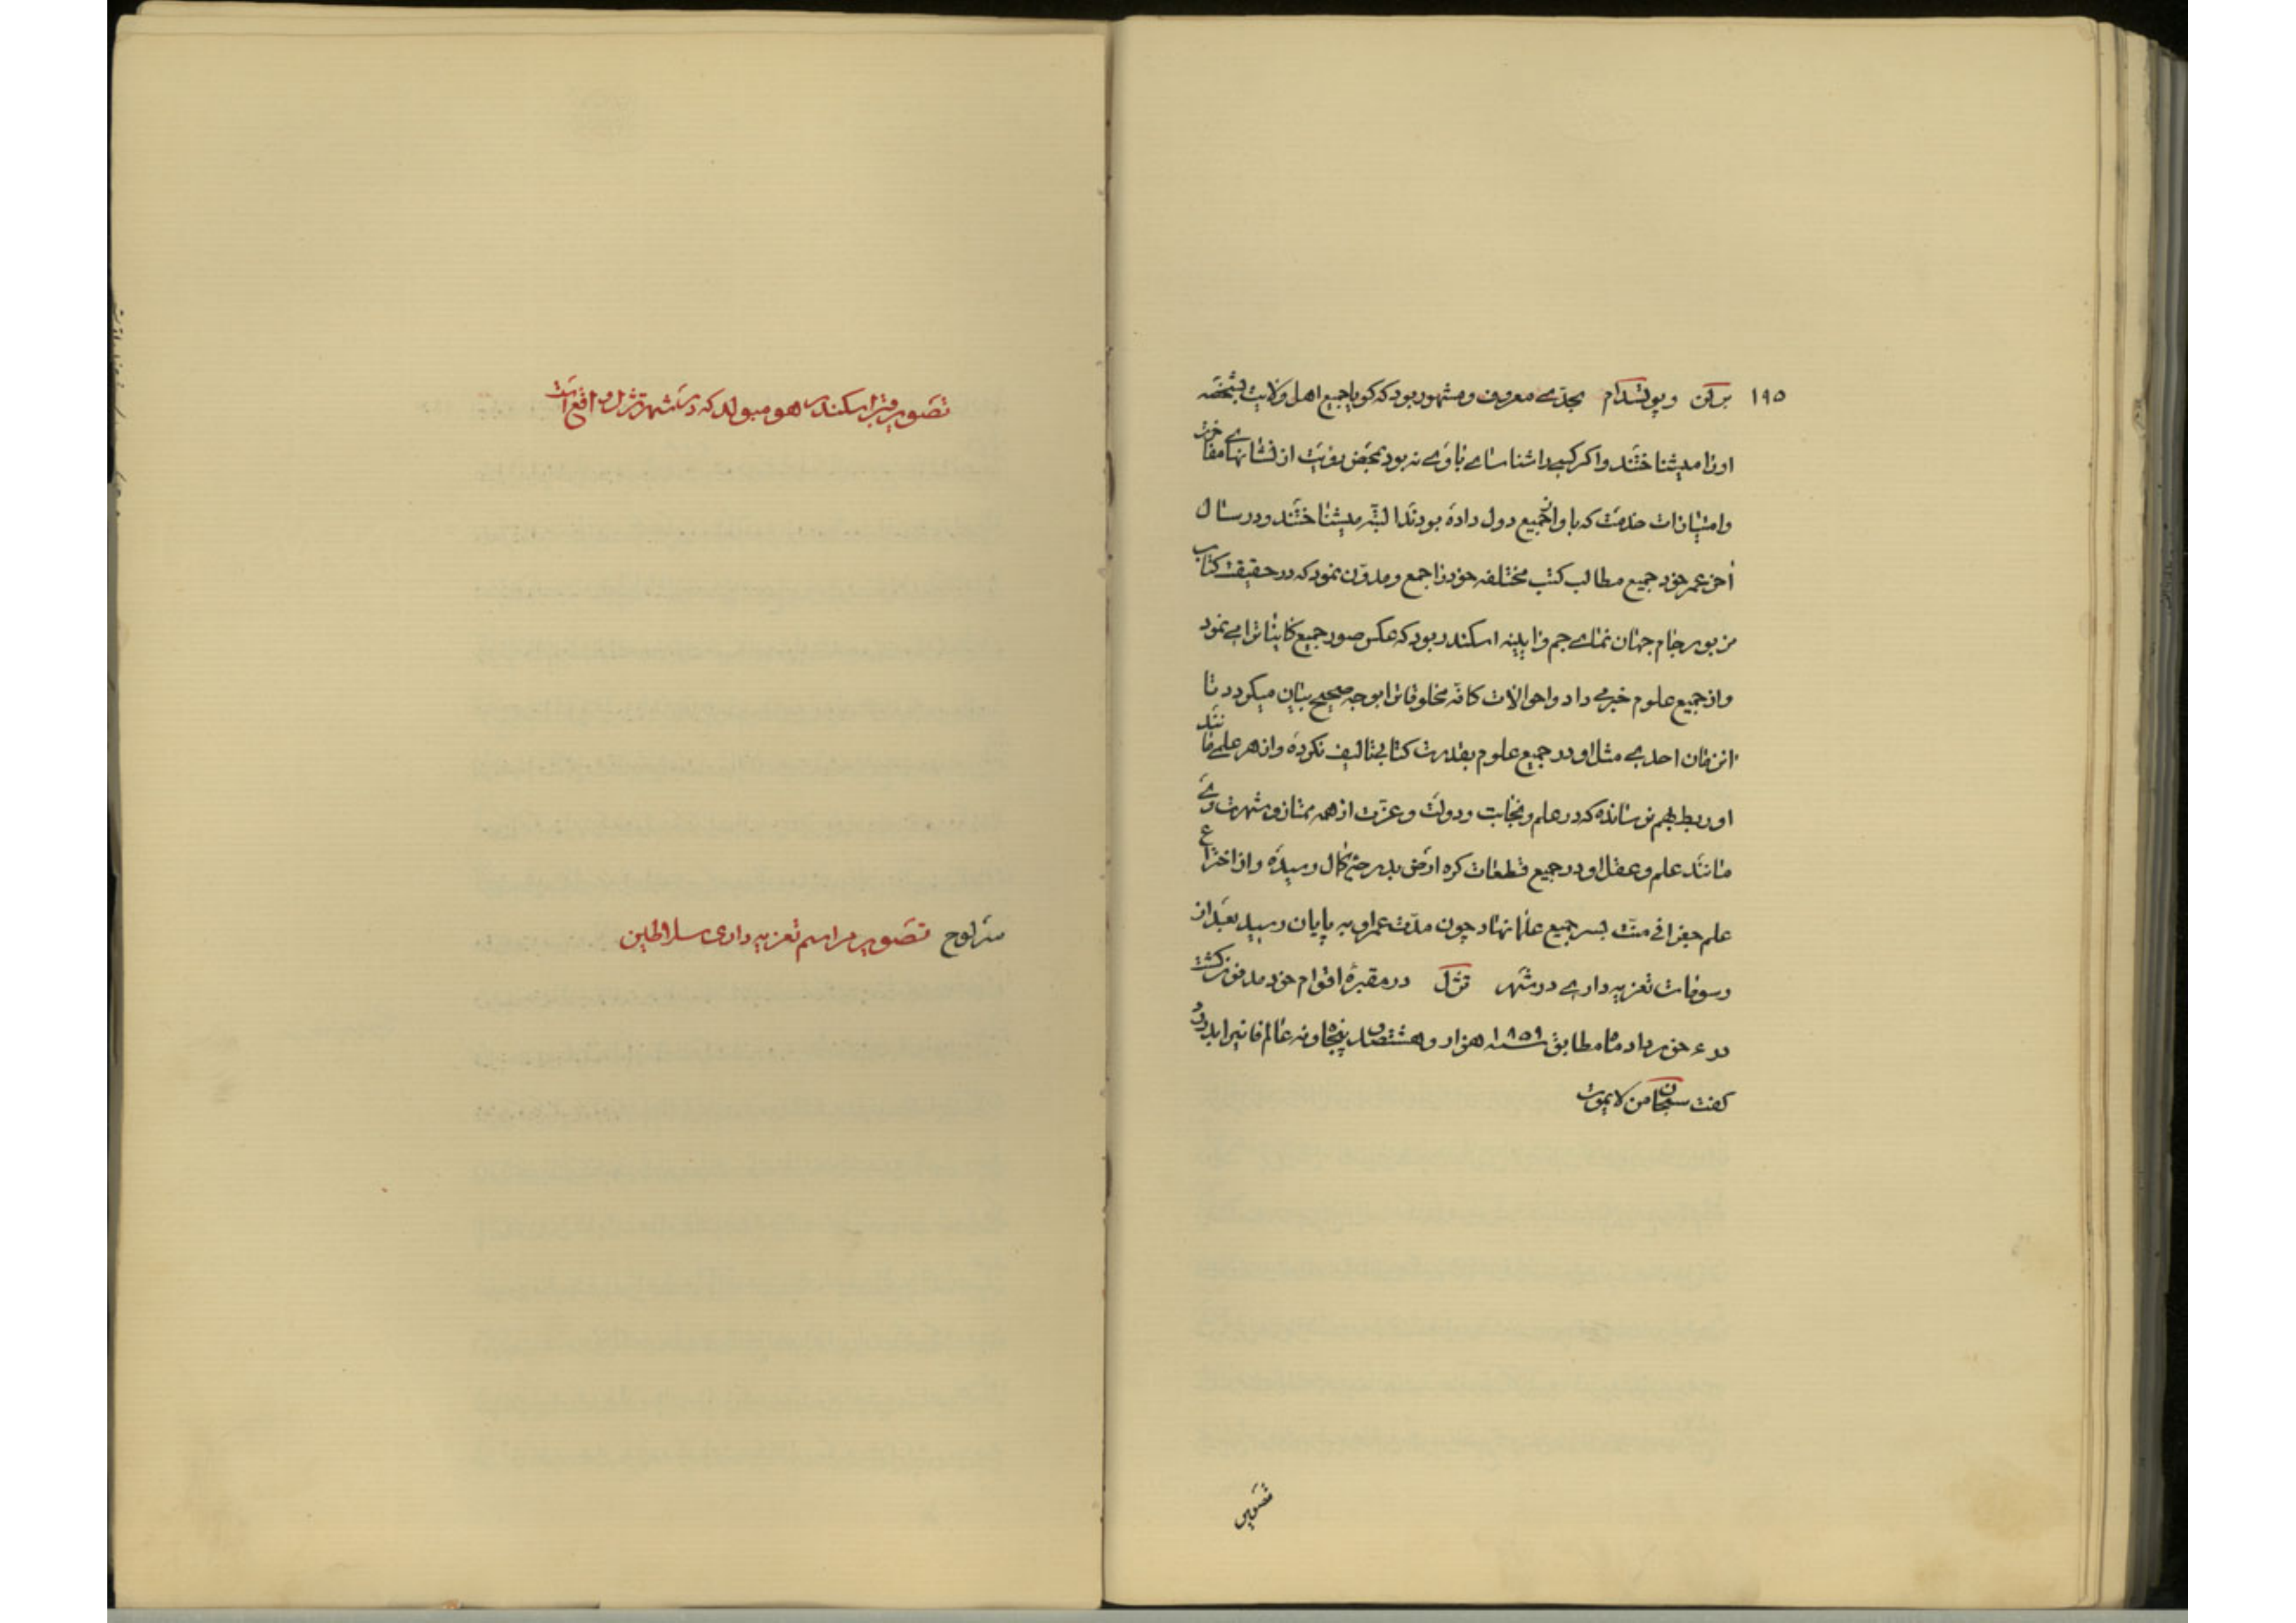 ۱۹۵ برلن و پوتسدام بحدّے معروف و مشهور بود که کویا جمیع اهل ولایت بشخصه
اورا میشناختند و اکر کسیرا شناسائے باوے نه بود بمحض رویت از نشانهاے مفاخرت
و امتیازات خدمت که باو از جمیع دول داده بودند البته میشناختند و در سال
آخر عمر خود جمیع مطالب کتب مختلفه خود را جمع و مدوّن نمود که در حقیقت کتاب
مزبور جام جهان نماے جم و آیینه اسکندر بود که عکس صور جمیع کایناترا مے نمود
و از جمیع علوم خبر مے داد و احوالات کافه مخلوقاترا بوجه صحیح بیان میکردد تا
این زمان احدے مثل او در جمیع علوم بقدرت کتابے تالیف نکرده و از هر علمے مانند
او ربط بهم نرسانده که در علم و نجابت و دولت و عزّت از همه ممتاز و شهرت وے
مانند علم و عقل او در جمیع قطعات کره ارض بدرجهٔ کمال رسیده و از اختراع
علم جغرافی منّت بسر جمیع علما نهاد چون مدّت عمر او به پایان رسید بعد از
رسومات تعزیه دارے در شهر تزل در مقبرهٔ اقوام خود مدفون کشت
در ۶ خورداد ماه مطابق سنه ۱۸۵۹ هزار و هشتصد پنجاه و نه عالم فانیرا بدرود
کفت سبحان من لا یموت
تصویر
تصویر قبر اسکندر هومبولد که در شهر تزل واقع است
سرلوح تصویر مراسم تعزیه داری سلاطین